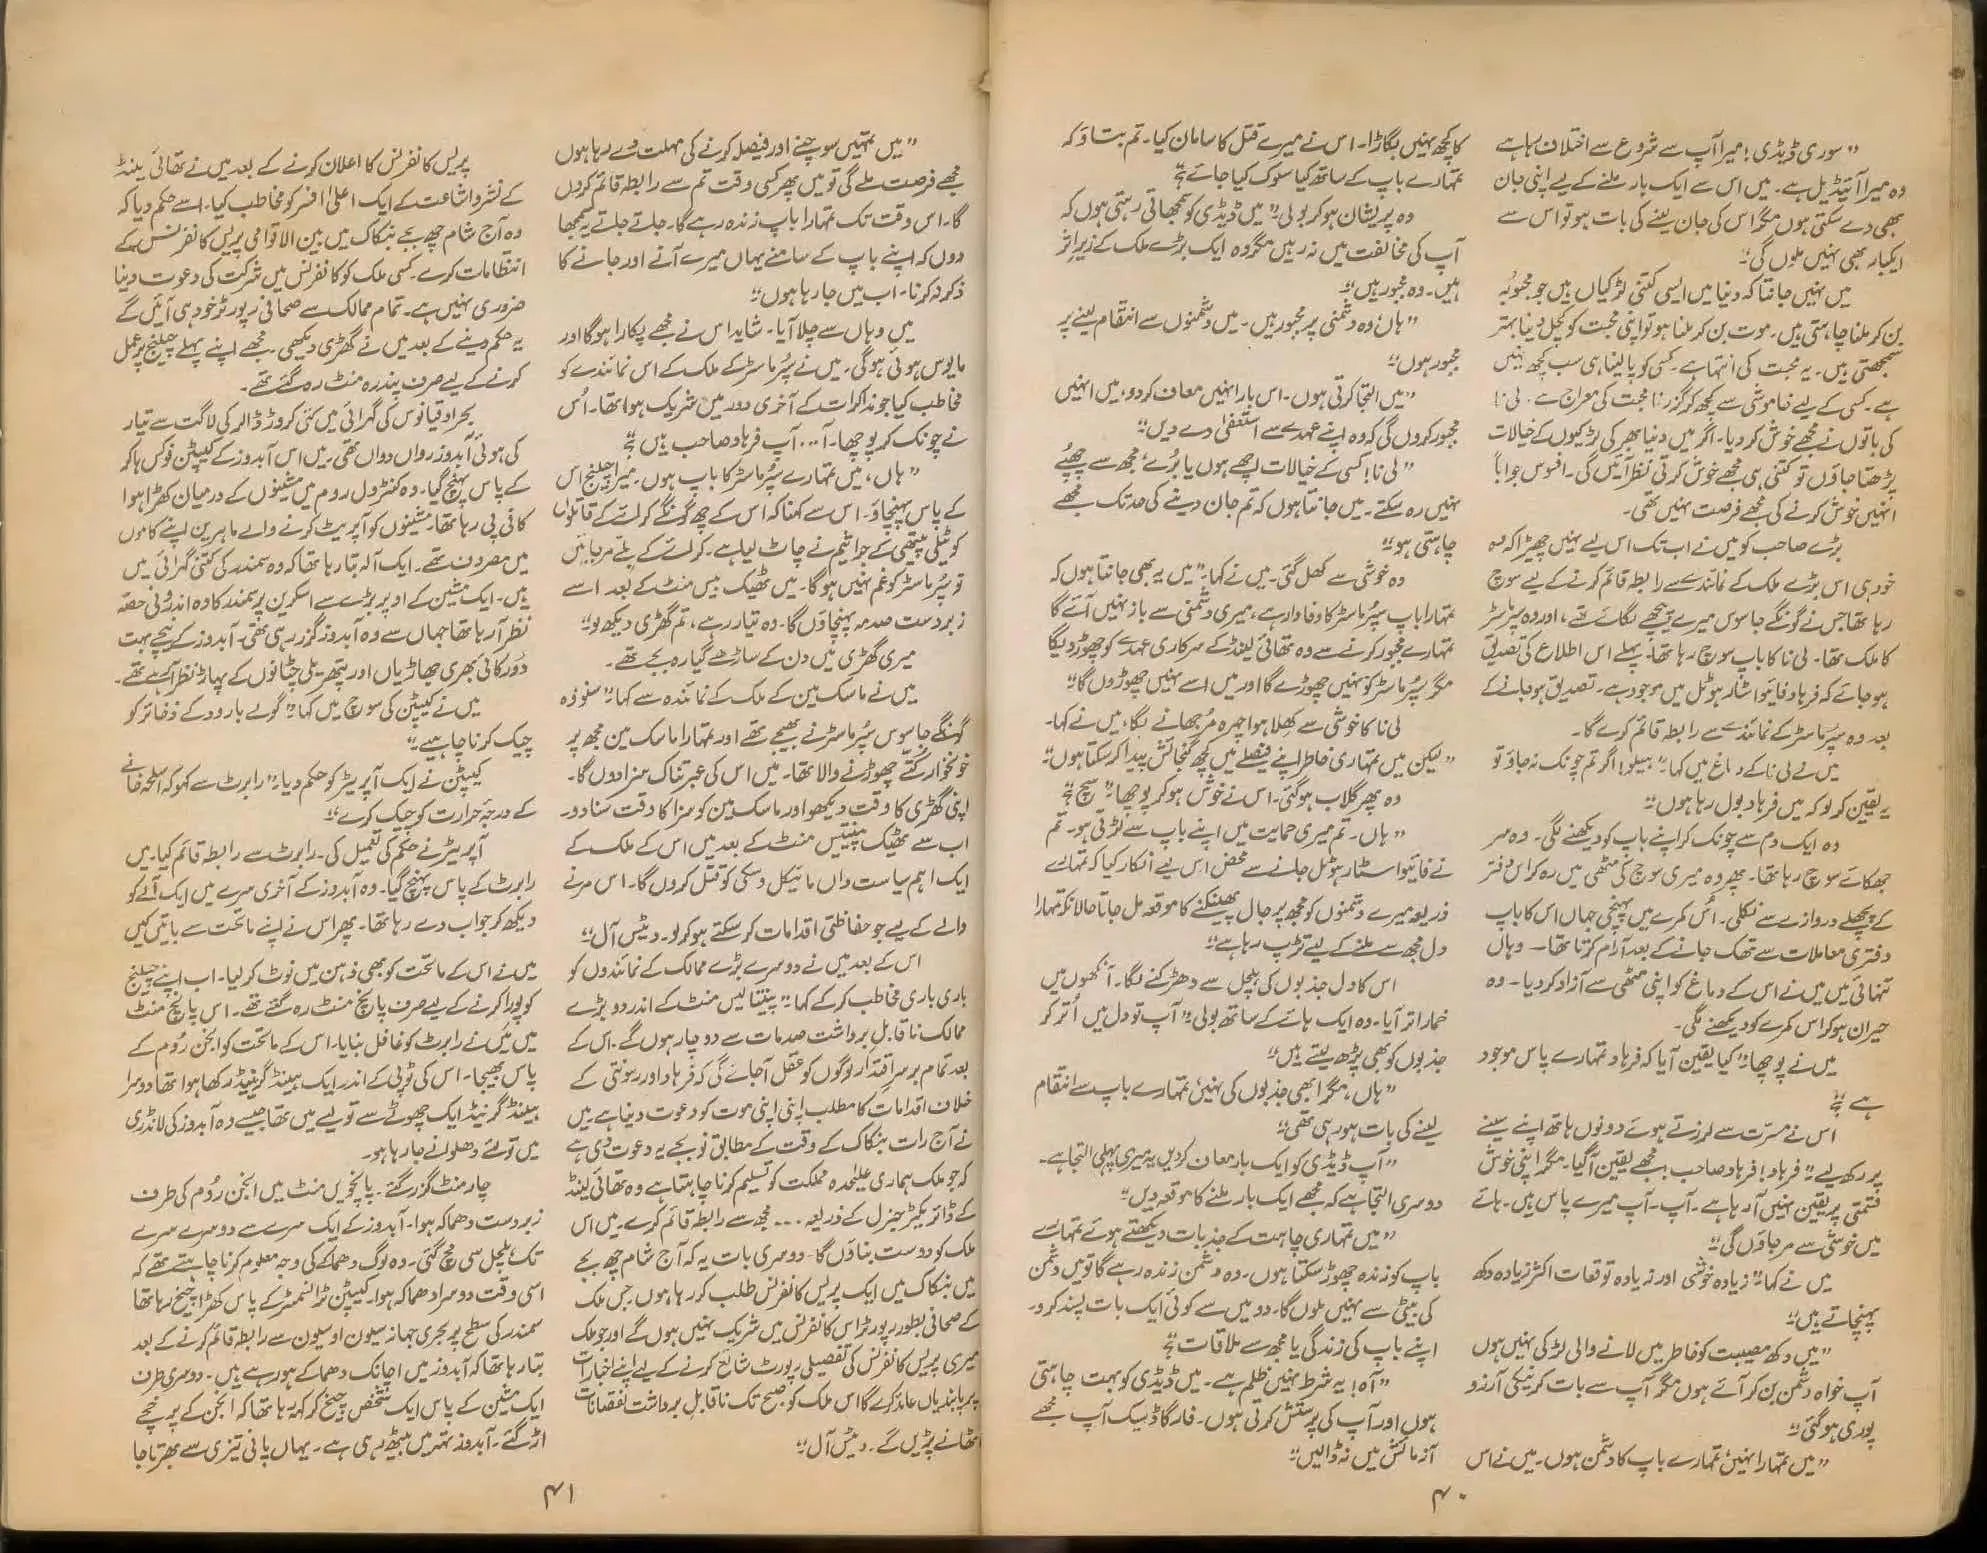 ”سوری ڈیڈی! میرا آپ سے شروع سے اختلاف رہا ہے
وہ میرا آئیڈیل ہے۔ میں اس سے ایک بار ملنے کے لیے اپنی جان
بھی دے سکتی ہوں مگر اس کی جان لینے کی بات ہو تو اس سے
ایکبار بھی نہیں ملوں گی“
میں نہیں جانتا کہ دنیا میں ایسی کتنی لڑکیاں ہیں جو محبوبہ
بن کر ملنا چاہتی ہیں۔ موت بن کر ملنا ہو تو اپنی محبت کو کچل دینا بہتر
سمجھتی ہیں۔ یہ محبت کی انتہا ہے۔ کسی کو پا لینا ہی سب کچھ نہیں
ہے۔ کسی کے لیے خاموشی سے کچھ کر گزرنا محبت کی معراج ہے۔ لی نا
کی باتوں نے مجھے خوش کر دیا۔ اگر میں دنیا بھر کی لڑکیوں کے خیالات
پڑھتا جاؤں تو کتنی ہی مجھے خوش کرتی نظر آئیں گی۔ افسوس جواباً
انہیں خوش کرنے کی مجھے فرصت نہیں تھی۔
بڑے صاحب کو میں نے اب تک اس لیے نہیں چھیڑا کہ وہ
خود ہی اس بڑے ملک کے نمائندے سے رابطہ قائم کرنے کے لیے سوچ
رہا تھا جس نے گونگے جاسوس میرے پیچھے لگائے تھے، اور وہ سپر ماسٹر
کا ملک تھا۔ لی نا کا باپ سوچ رہا تھا۔ پہلے اس اطلاع کی تصدیق
ہو جائے کہ فرہاد فائیو اسٹار ہوٹل میں موجود ہے۔ تصدیق ہو جانے کے
بعد وہ سپر ماسٹر کے نمائندے سے رابطہ قائم کرے گا۔
میں نے لی نا کے دماغ میں کہا ”ہیلو! اگر تم چونک نہ جاؤ تو
یہ یقین کر لو کہ میں فرہاد بول رہا ہوں“
وہ ایک دم سے چونک کر اپنے باپ کو دیکھنے لگی۔ وہ سر
جھکائے سوچ رہا تھا۔ پھر وہ میری سوچ کی مٹھی میں رہ کر اس دفتر
کے پچھلے دروازے سے نکلی۔ اُس کمرے میں پہنچی جہاں اس کا باپ
دفتری معاملات سے تھک جانے کے بعد آرام کرتا تھا۔ وہاں
تنہائی میں میں نے اس کے دماغ کو اپنی مٹھی سے آزاد کر دیا۔ وہ
حیران ہو کر اس کمرے کو دیکھنے لگی۔
میں نے پوچھا ”کیا یقین آیا کہ فرہاد تمہارے پاس موجود
ہے؟“
اس نے مسرت سے لرزتے ہوئے دونوں ہاتھ اپنے سینے
پر رکھ لیے ”فرہاد! فرہاد صاحب! مجھے یقین آ گیا۔ مگر اپنی خوش
قسمتی پر یقین نہیں آ رہا ہے۔ آپ۔ آپ میرے پاس ہیں۔ ہائے
میں خوشی سے مر جاؤں گی“
میں نے کہا ”زیادہ خوشی اور زیادہ توقعات اکثر زیادہ دکھ
پہنچاتے ہیں“
”میں دکھ مصیبت کو خاطر میں لانے والی لڑکی نہیں ہوں
آپ خواہ دشمن بن کر آئے ہوں مگر آپ سے بات کرنیکی آرزو
پوری ہو گئی“
”میں تمہارا نہیں، تمہارے باپ کا دشمن ہوں۔ میں نے اس
کا کچھ نہیں بگاڑا۔ اس نے میرے قتل کا سامان کیا۔ تم بتاؤ کہ
تمہارے باپ کے ساتھ کیا سلوک کیا جائے؟“
وہ پریشان ہو کر بولی ”میں ڈیڈی کو سمجھاتی رہتی ہوں کہ
آپ کی مخالفت میں نہ رہیں مگر وہ ایک بڑے ملک کے زیر اثر
ہیں۔ وہ مجبور ہیں“
”ہاں وہ دشمنی پر مجبور ہیں۔ میں دشمنوں سے انتقام لینے پر
مجبور ہوں“
”میں التجا کرتی ہوں۔ اس بار انہیں معاف کر دو، میں انہیں
مجبور کروں گی کہ وہ اپنے عہدے سے استعفیٰ دے دیں“
”لی نا! کسی کے خیالات اچھے ہوں یا بُرے، مجھ سے چھپے
نہیں رہ سکتے۔ میں جانتا ہوں کہ تم جان دینے کی حد تک مجھے
چاہتی ہو“
وہ خوشی سے کھل گئی۔ میں نے کہا ”میں یہ بھی جانتا ہوں کہ
تمہارا باپ سپر ماسٹر کا وفادار ہے، میری دشمنی سے باز نہیں آئے گا
تمہارے مجبور کرنے سے وہ تھائی لینڈ کے سرکاری عہدے کو چھوڑ دیگا
مگر سپر ماسٹر کو نہیں چھوڑے گا اور میں اسے نہیں چھوڑوں گا“
لی نا کا خوشی سے کھلا ہوا چہرہ مرجھانے لگا، میں نے کہا۔
”لیکن میں تمہاری خاطر اپنے فیصلے میں کچھ گنجائش پیدا کر سکتا ہوں“
وہ پھر گلاب ہو گئی۔ اس نے خوش ہو کر پوچھا ”سچ؟“
”ہاں۔ تم میری حمایت میں اپنے باپ سے لڑتی ہو۔ تم
نے فائیو اسٹار ہوٹل جانے سے محض اس لیے انکار کیا کہ تمہارے
ذریعہ میرے دشمنوں کو مجھ پر جال پھینکنے کا موقعہ مل جاتا حالانکہ تمہارا
دل مجھ سے ملنے کے لیے تڑپ رہا ہے“
اس کا دل جذبوں کی ہلچل سے دھڑکنے لگا۔ آنکھوں میں
خمار اتر آیا۔ وہ ایک ہائے کے ساتھ بولی ”آپ تو دل میں اُتر کر
جذبوں کو بھی پڑھ لیتے ہیں“
”ہاں، مگر ابھی جذبوں کی نہیں، تمہارے باپ سے انتقام
لینے کی بات ہو رہی تھی“
”آپ ڈیڈی کو ایک بار معاف کر دیں یہ میری پہلی التجا ہے۔
دوسری التجا ہے کہ مجھے ایک بار ملنے کا موقعہ دیں“
”میں تمہاری چاہت کے جذبات دیکھتے ہوئے تمہارے
باپ کو زندہ چھوڑ سکتا ہوں۔ وہ دشمن زندہ رہے گا تو میں دشمن
کی بیٹی سے نہیں ملوں گا۔ دو میں سے کوئی ایک بات پسند کرو۔
اپنے باپ کی زندگی یا مجھ سے ملاقات؟“
”آہ! یہ شرط نہیں ظلم ہے۔ میں ڈیڈی کو بہت چاہتی
ہوں اور آپ کی پرستش کرتی ہوں۔ فار گاڈ سیک آپ مجھے
آزمائش میں نہ ڈالیں“
۴۰
”میں تمہیں سوچنے اور فیصلہ کرنے کی مہلت دے رہا ہوں
مجھے فرصت ملے گی تو میں پھر کسی وقت تم سے رابطہ قائم کروں
گا۔ اس وقت تک تمہارا باپ زندہ رہے گا۔ جاتے جاتے یہ سمجھا
دوں کہ اپنے باپ کے سامنے یہاں میرے آنے اور جانے کا
ذکر نہ کرنا۔ اب میں جا رہا ہوں“
میں وہاں سے چلا آیا۔ شاید اس نے مجھے پکارا ہو گا اور
مایوس ہوئی ہو گی۔ میں نے سپر ماسٹر کے ملک کے اس نمائندے کو
مخاطب کیا جو مذاکرات کے آخری دور میں شریک ہوا تھا۔ اُس
نے چونک کر پوچھا۔ آ... آپ فرہاد صاحب ہیں؟“
”ہاں، میں تمہارے سپر ماسٹر کا باپ ہوں۔ میرا چیلنج اس
کے پاس پہنچاؤ۔ اس سے کہنا کہ اس کے چھ گونگے کرائے کے قاتلوں
کو ٹیلی پیتھی کے جراثیم نے چاٹ لیا ہے۔ کرائے کے پلے مر جائیں
تو سپر ماسٹر کو غم نہیں ہو گا۔ میں ٹھیک بیس منٹ کے بعد اسے
زبردست صدمہ پہنچاؤں گا۔ وہ تیار رہے، تم گھڑی دیکھ لو“
میری گھڑی میں دن کے ساڑھے گیارہ بجے تھے۔
میں نے ماسک مین کے ملک کے نمائندہ سے کہا ”سنو وہ
گونگے جاسوس سپر ماسٹر نے بھیجے تھے اور تمہارا ماسک مین مجھ پر
خونخوار کتے چھوڑنے والا تھا۔ میں اس کی عبرتناک سزا دوں گا۔
اپنی گھڑی کا وقت دیکھو اور ماسک مین کو سزا کا وقت سنا دو۔
اب سے ٹھیک پینتیس منٹ کے بعد میں اس کے ملک کے
ایک اہم سیاست داں مائیکل وسکی کو قتل کروں گا۔ اس مرنے
والے کے لیے جو حفاظتی اقدامات کر سکتے ہو کر لو۔ دیٹس آل“
اس کے بعد میں نے دوسرے بڑے ممالک کے نمائندوں کو
باری باری مخاطب کر کے کہا ”پینتالیس منٹ کے اندر دو بڑے
ممالک ناقابل برداشت صدمات سے دوچار ہوں گے۔ اس کے
بعد تمام برسراقتدار لوگوں کو عقل آ جائے گی کہ فرہاد اور رسونتی کے
خلاف اقدامات کا مطلب اپنی اپنی موت کو دعوت دینا ہے میں
نے آج رات بنکاک کے وقت کے مطابق نو بجے یہ دعوت دی ہے
کہ جو ملک ہماری علیحدہ مملکت کو تسلیم کرنا چاہتا ہے وہ تھائی لینڈ
کے ڈائریکٹر جنرل کے ذریعہ... مجھ سے رابطہ قائم کرے۔ میں اس
ملک کو دوست بناؤں گا۔ دوسری بات یہ کہ آج شام چھ بجے
میں بنکاک میں ایک پریس کانفرنس طلب کر رہا ہوں، جس ملک
کے صحافی بطور رپورٹر اس کانفرنس میں شریک نہیں ہوں گے اور جو ملک
میری پریس کانفرنس کی تفصیلی رپورٹ شائع کرنے کے لیے اپنے اخبارات
پر پابندیاں عائد کرے گا اس ملک کو صبح تک ناقابل برداشت نقصانات
اٹھانے پڑیں گے۔ دیٹس آل“
پریس کانفرنس کا اعلان کرنے کے بعد میں نے تھائی لینڈ
کے نشر و اشاعت کے ایک اعلیٰ افسر کو مخاطب کیا۔ اسے حکم دیا کہ
وہ آج شام چھ بجے بنکاک میں بین الاقوامی پریس کانفرنس کے
انتظامات کرے۔ کسی ملک کو کانفرنس میں شرکت کی دعوت دینا
ضروری نہیں ہے۔ تمام ممالک سے صحافی رپورٹر خود ہی آئیں گے
یہ حکم دینے کے بعد میں نے گھڑی دیکھی۔ مجھے اپنے پہلے چیلنج پر عمل
کرنے کے لیے صرف پندرہ منٹ رہ گئے تھے۔
بحر اوقیانوس کی گہرائی میں کئی کروڑ ڈالر کی لاگت سے تیار
کی ہوئی آبدوز رواں دواں تھی۔ میں اس آبدوز کے کیپٹن فوکس ہاکر
کے پاس پہنچ گیا۔ وہ کنٹرول روم میں مشینوں کے درمیان کھڑا ہوا
کافی پی رہا تھا۔ مشینوں کو آپریٹ کرنے والے ماہرین اپنے کاموں
میں مصروف تھے۔ ایک آلہ بتا رہا تھا کہ وہ سمندر کی کتنی گہرائی میں
ہیں۔ ایک مشین کے اوپر بڑے سے اسکرین پر سمندر کا وہ اندرونی حصہ
نظر آ رہا تھا جہاں سے وہ آبدوز گزر رہی تھی۔ آبدوز کے نیچے بہت
دُور کائی بھری جھاڑیاں اور پتھریلی چٹانوں کے پہاڑ نظر آ رہے تھے۔
میں نے کیپٹن کی سوچ میں کہا ”گولے بارود کے ذخائر کو
چیک کرنا چاہیے“
کیپٹن نے ایک آپریٹر کو حکم دیا ”رابرٹ سے کہو کہ اسلحہ خانے
کے درجہ حرارت کو چیک کرے“
آپریٹر نے حکم کی تعمیل کی۔ رابرٹ سے رابطہ قائم کیا۔ میں
رابرٹ کے پاس پہنچ گیا۔ وہ آبدوز کے آخری سرے میں ایک آلے کو
دیکھ کر جواب دے رہا تھا۔ پھر اس نے اپنے ماتحت سے باتیں کیں
میں نے اس کے ماتحت کو بھی ذہن میں نوٹ کر لیا۔ اب اپنے چیلنج
کو پورا کرنے کے لیے صرف پانچ منٹ رہ گئے تھے۔ اس پانچ منٹ
میں میں نے رابرٹ کو غافل بنایا۔ اس کے ماتحت کو انجن رُوم کے
پاس بھیجا۔ اس کی ٹوپی کے اندر ایک ہینڈ گرینیڈ رکھا ہوا تھا دوسرا
ہینڈ گرنیڈ ایک چھوٹے سے تولیے میں تھا جیسے وہ آبدوز کی لانڈری
میں تولئے دھلوانے جا رہا ہو۔
چار منٹ گزر گئے۔ پانچویں منٹ میں انجن رُوم کی طرف
زبردست دھماکہ ہوا۔ آبدوز کے ایک سرے سے دوسرے سرے
تک ہلچل سی مچ گئی۔ وہ لوگ دھماکے کی وجہ معلوم کرنا چاہتے تھے کہ
اسی وقت دوسرا دھماکہ ہوا۔ کیپٹن ٹرانسمٹر کے پاس کھڑا چیخ رہا تھا
سمندر کی سطح پر بحری جہاز سیلون او سیلون سے رابطہ قائم کرنے کے بعد
بتا رہا تھا کہ آبدوز میں اچانک دھماکے ہو رہے ہیں۔ دوسری طرف
ایک مشین کے پاس ایک شخص چیخ کر کہہ رہا تھا کہ انجن کے پرخچے
اڑ گئے۔ آبدوز تہہ میں بیٹھ رہی ہے۔ یہاں پانی تیزی سے بھرتا جا
۴۱